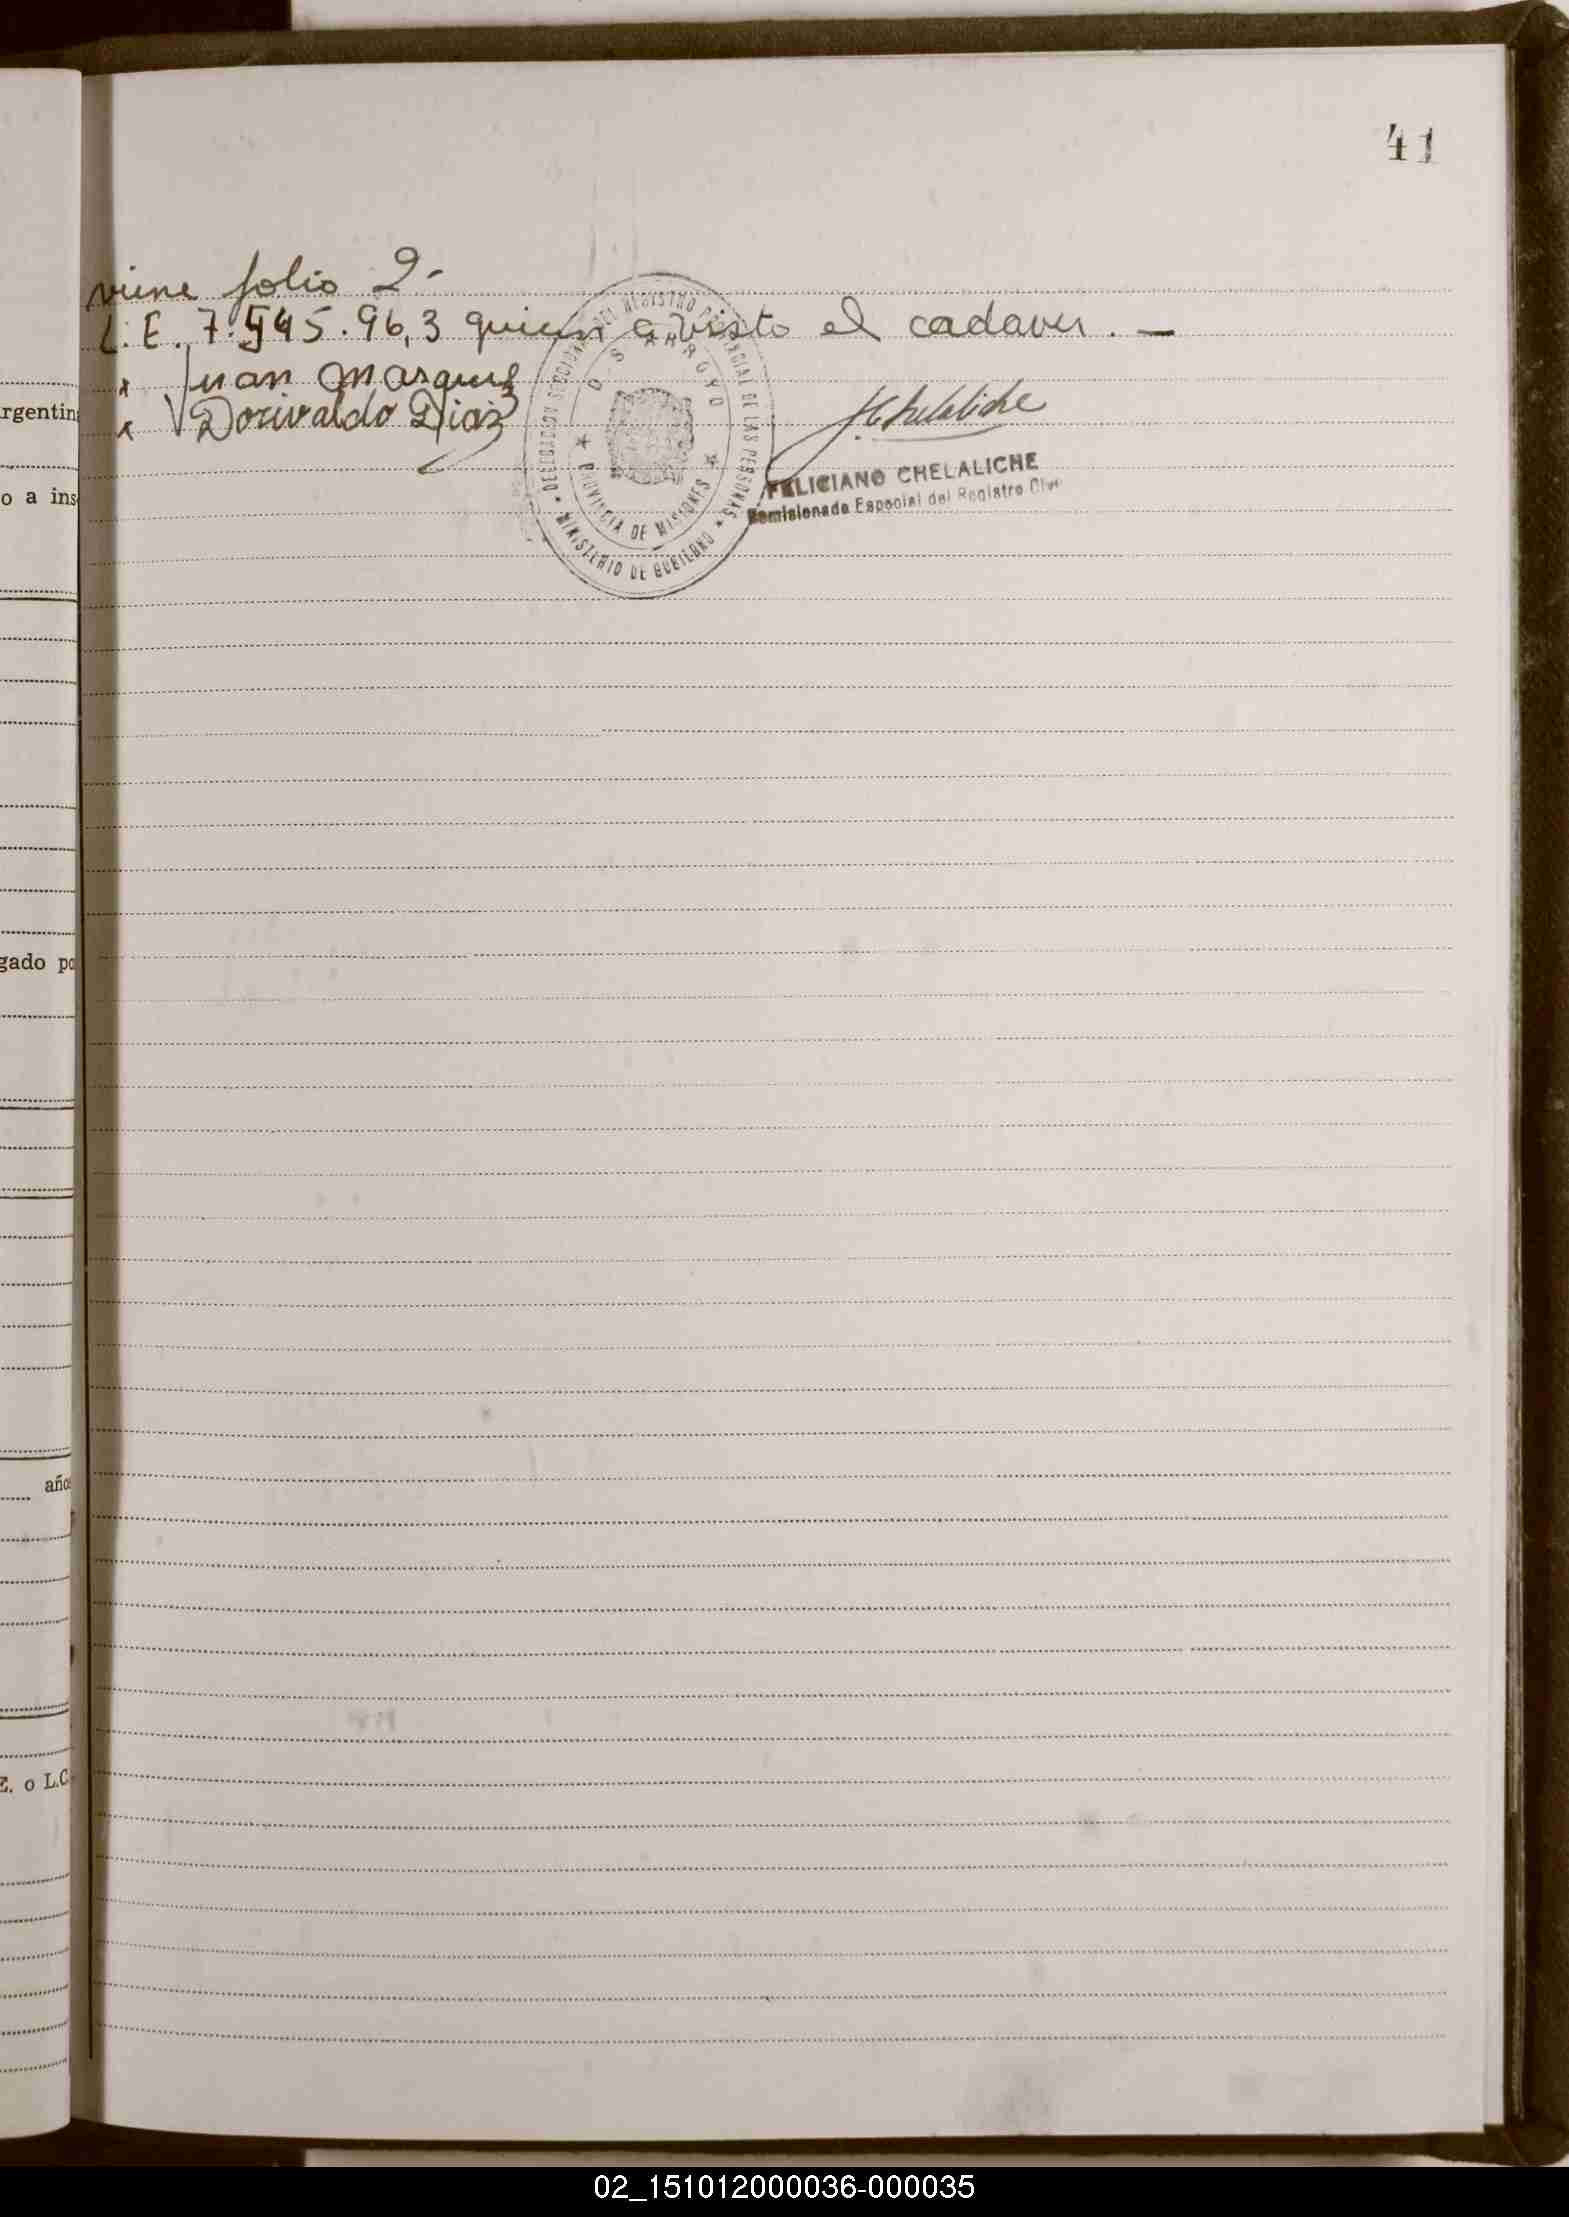 41
viene folio 2-
L.E. 7.545.963 quien a visto el cadaver. —
x Juan Marquez
x Dorivaldo Diaz
FChelaliche
FELICIANO CHELALICHE
Comisionado Especial del Registro Civil
DELEGACION SECCIONAL DEL REGISTRO PROVINCIAL DE LAS PERSONAS
MINISTERIO DE GOBIERNO
ARROYO
PROVINCIA DE MISIONES
rgentin
o a ins
gado po
año
E. o L.C
02_151012000036-000035